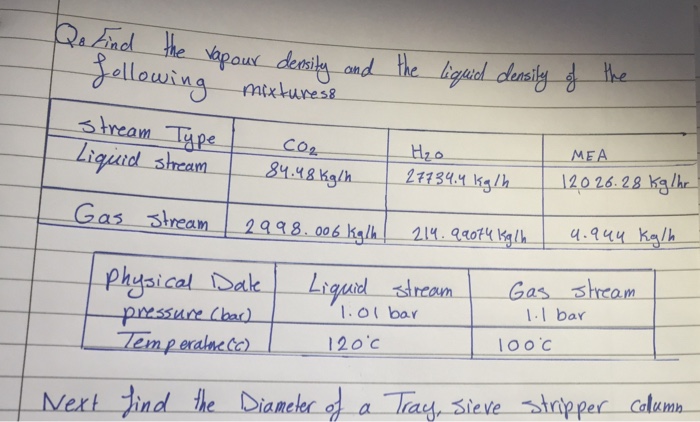 Q. Find the vapour density and the liquid density of the
following mixtures:
Stream Type CO2 H2O MEA
Liquid stream 84.48 Kg/h 27734.4 Kg/h 12026.28 Kg/hr
Gas stream 2998.006 Kg/h 214.99074 Kg/h 4.944 Kg/h
Physical Date Liquid stream Gas stream
pressure (bar) 1.01 bar 1.1 bar
Temperature(c) 120°c 100°c
Next find the Diameter of a Tray, sieve stripper column